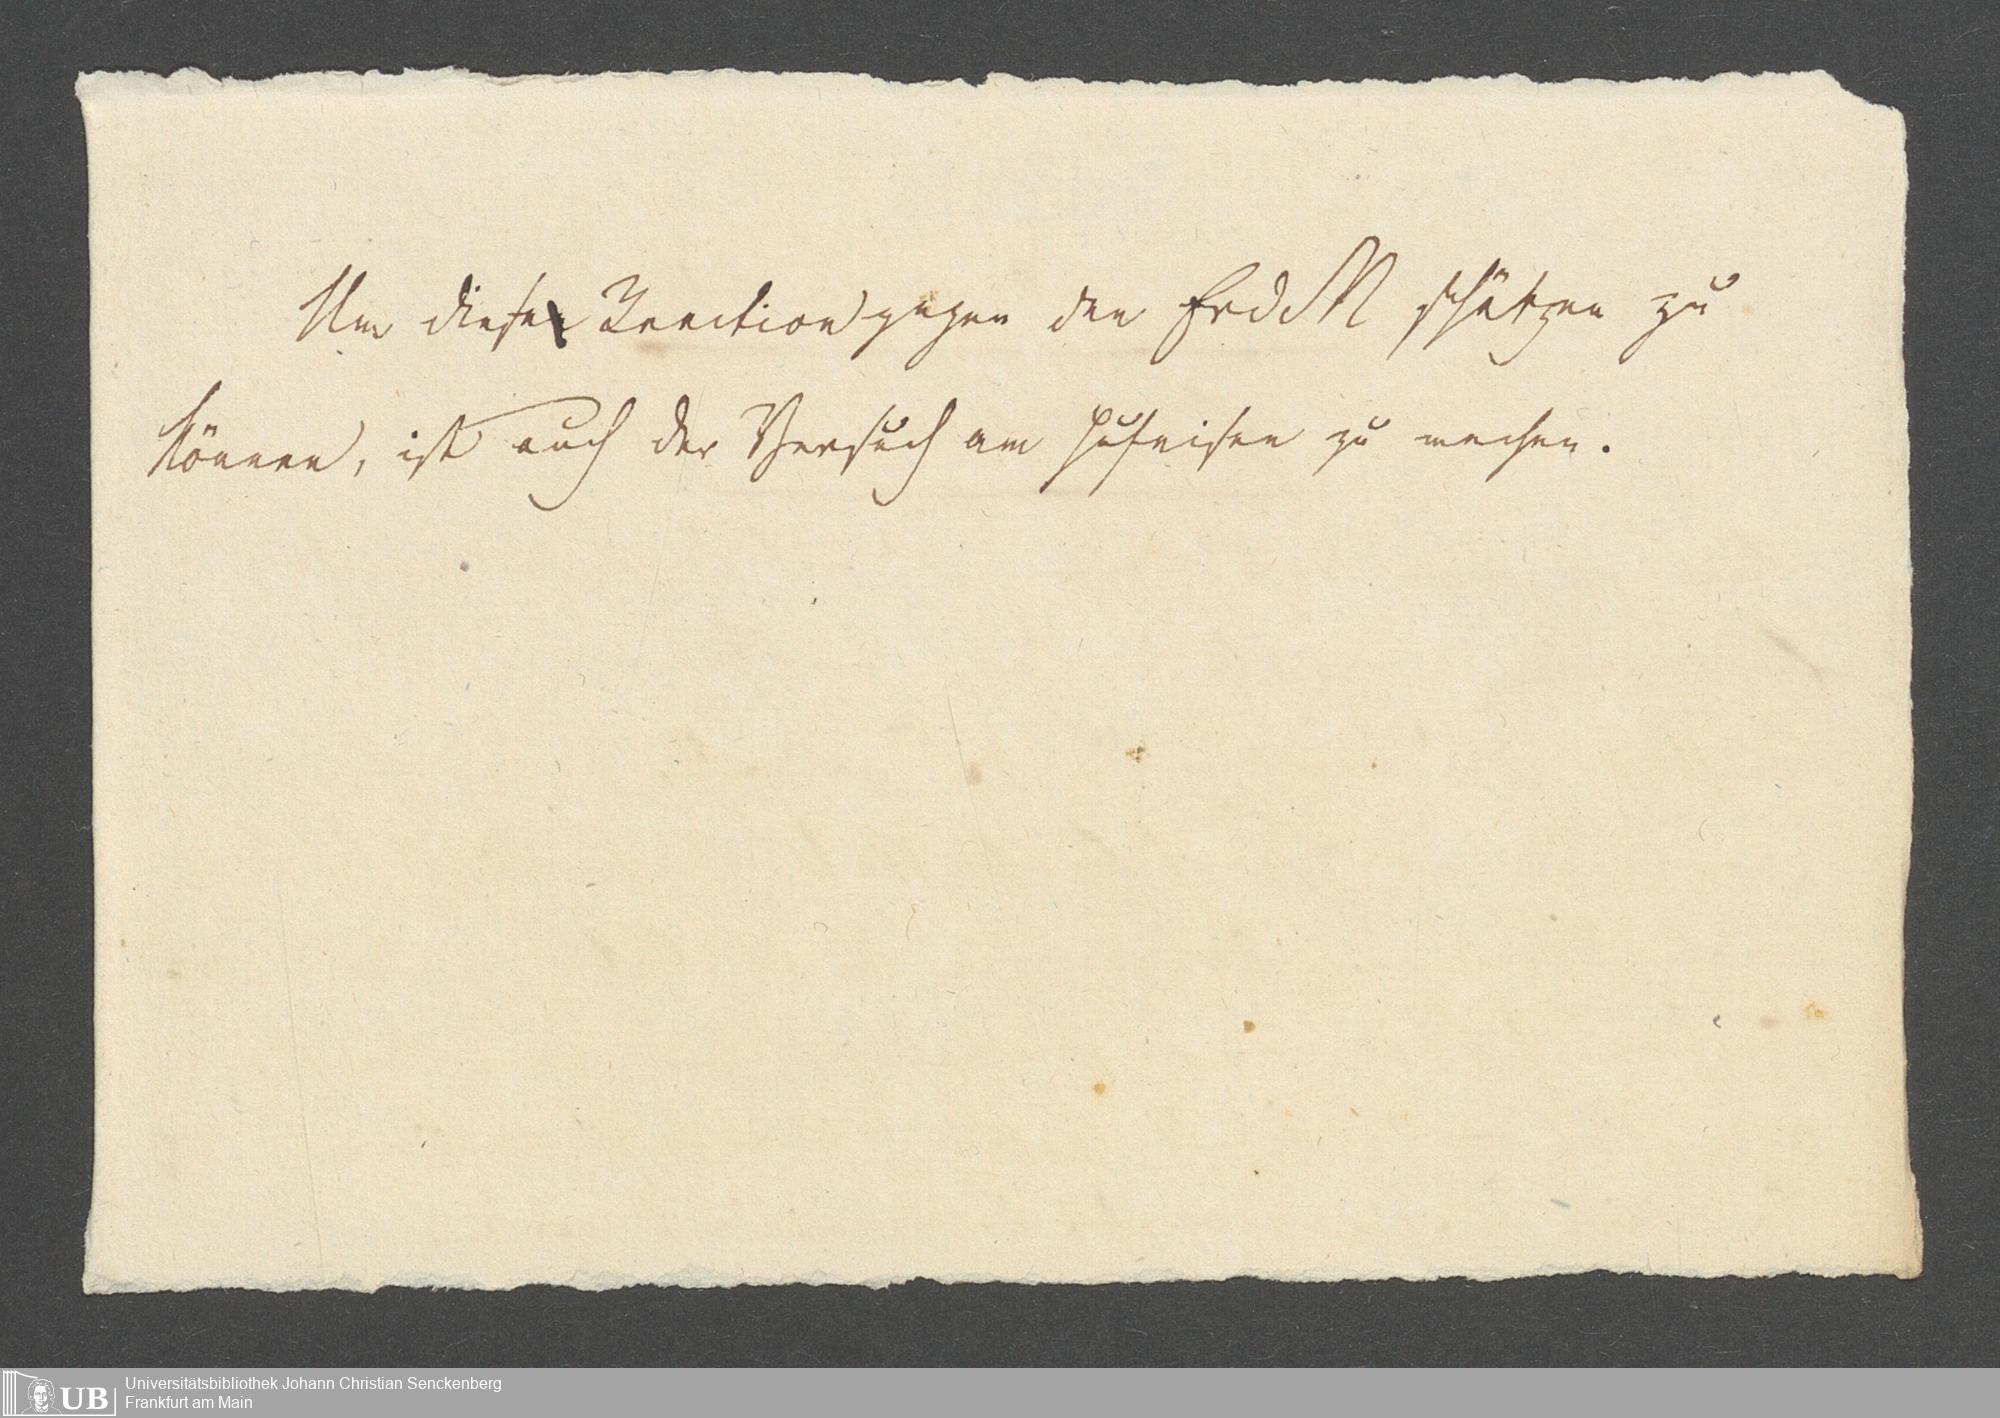 Um diese Reaction gegen den ErdM schätzen zu
können, ist auch der Versuch am Hufeisen zu machen.
UB
Universitätsbibliothek Johann Christian Senckenberg
Frankfurt am Main